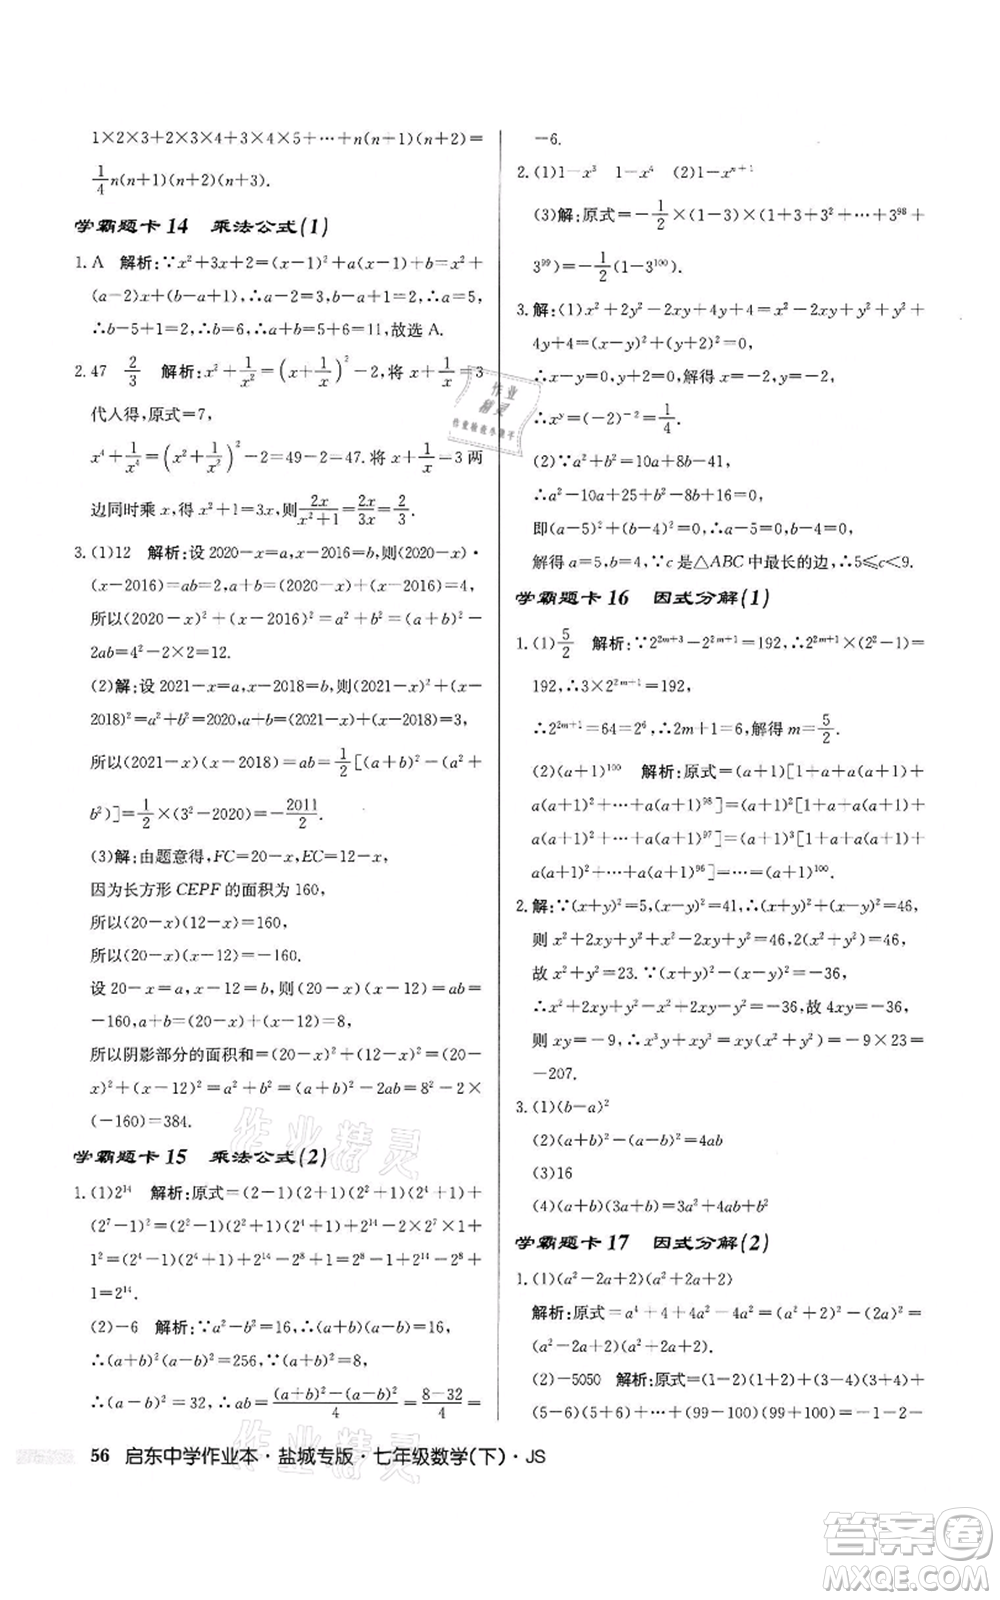 1×2×3+2×3×4+3×4×5+…+n(n+1)(n+2)=
1/4 n(n+1)(n+2)(n+3).
学霸题卡14 乘法公式(1)
1. A 解析:∵x²+3x+2=(x-1)²+a(x-1)+b=x²+
(a-2)x+(b-a+1),∴a-2=3,∴a=5,
∴b-5+1=2,∴b=6,∴a+b=5+6=11,故选A.
2. 47 2/3 解析:x²+1/x²=(x+1/x)²-2,将x+1/x=3
代人得,原式=7,
x⁴+1/x⁴=(x²+1/x²)²-2=49-2=47.将x+1/x=3两
边同时乘x,得x²+1=3x,则2x/(x²+1)=2x/3x=2/3.
3. (1)12 解析:设2020-x=a,x-2016=b,则(2020-x)·
(x-2016)=ab=2,a+b=2020-x+x-2016=4,
所以(2020-x)²+(x-2016)²=a²+b²=(a+b)²-
2ab=4²-2×2=12.
(2)解:设2021-x=a,x-2018=b,则(2021-x)²+(x-
2018)²=a²+b²=2020,a+b=(2021-x)+(x-2018)=3,
所以(2021-x)(x-2018)=ab=1/2[(a+b)²-(a²+
b²)]=1/2×(3²-2020)=-2011/2.
(3)解:由题意得,FC=20-x,EC=12-x,
因为长方形CEPF的面积为160,
所以(20-x)(12-x)=160,
所以(20-x)(x-12)=-160.
设20-x=a,x-12=b,则(20-x)(x-12)=ab=
-160,a+b=(20-x)+(x-12)=8,
所以阴影部分的面积和=(20-x)²+(12-x)²=(20-
x)²+(x-12)²=a²+b²=(a+b)²-2ab=8²-2×
(-160)=384.
学霸题卡15 乘法公式(2)
1. (1)2¹⁴ 解析:原式=(2-1)(2+1)(2²+1)(2⁴+1)+
(2⁷-1)²=(2²-1)(2²+1)(2⁴+1)+2¹⁴-2×2⁷+1=
(2⁴-1)(2⁴+1)+2¹⁴-2⁸+1=2⁸-1+2¹⁴-2⁸+
1=2¹⁴.
(2)-6 解析:∵a²-b²=16,∴(a+b)(a-b)=16,
∴(a+b)²(a-b)²=256,∵(a+b)²=8,
∴(a-b)²=32,∴ab=((a+b)²-(a-b)²)/4=(8-32)/4=
-6.
2. (1)1-x³ 1-x⁴ (2)1-xⁿ⁺¹
(3)解:原式=-1/2×(1-3)×(1+3+3²+…+3⁹⁸+
3⁹⁹)=-1/2(1-3¹⁰⁰).
3. 解:(1)x²+2y²-2xy+4y+4=x²-2xy+y²+y²+
4y+4=(x-y)²+(y+2)²=0,
∴x-y=0,y+2=0,解得x=-2,y=-2,
∴xʸ=(-2)⁻²=1/4.
(2)∵a²+b²=10a+8b-41,
∴a²-10a+25+b²-8b+16=0,
即(a-5)²+(b-4)²=0,∴a-5=0,b-4=0,
解得a=5,b=4,∵c是△ABC中最长的边,∴5≤c<9.
学霸题卡16 因式分解(1)
1. (1)5/2 解析:∵2²ᵐ⁺³-2²ᵐ⁺¹=192,∴2²ᵐ⁺¹×(2²-1)=
192,∴3×2²ᵐ⁺¹=192,
∴2²ᵐ⁺¹=64=2⁶,∴2m+1=6,解得m=5/2.
(2)(a+1)¹⁰⁰ 解析:原式=(a+1)[1+a+a(a+1)+
a(a+1)²+…+a(a+1)⁹⁸]=(a+1)²[1+a+a(a+1)+
a(a+1)²+…+a(a+1)⁹⁷]=(a+1)³[1+a+a(a+1)+
a(a+1)²+…+a(a+1)⁹⁶]=…=(a+1)¹⁰⁰.
2. 解:∵(x+y)²=5,(x-y)²=41,∴(x+y)²+(x-y)²=46,
则x²+2xy+y²+x²-2xy+y²=46,2(x²+y²)=46,
故x²+y²=23.∵(x-y)²-(x+y)²=-36,
∴x²+2xy+y²-x²+2xy-y²=-36,故4xy=-36,
则xy=-9,∴x³y+xy³=xy(x²+y²)=-9×23=
-207.
3. (1)(b-a)²
(2)(a+b)²-(a-b)²=4ab
(3)16
(4)(a+b)(3a+b)=3a²+4ab+b²
学霸题卡17 因式分解(2)
1. (1)(a²-2a+2)(a²+2a+2)
解析:原式=a⁴+4+4a²-4a²=(a²+2)²-(2a)²=
(a²-2a+2)(a²+2a+2).
(2)-5050 解析:原式=(1-2)(1+2)+(3-4)(3+
4)+(5-6)(5+6)+…+(99-100)(99+100)=
56 启东中学作业本·盐城专版·七年级数学(下)·JS
作业
精灵
作业精灵
作业精灵
答案卷
MXQE.COM